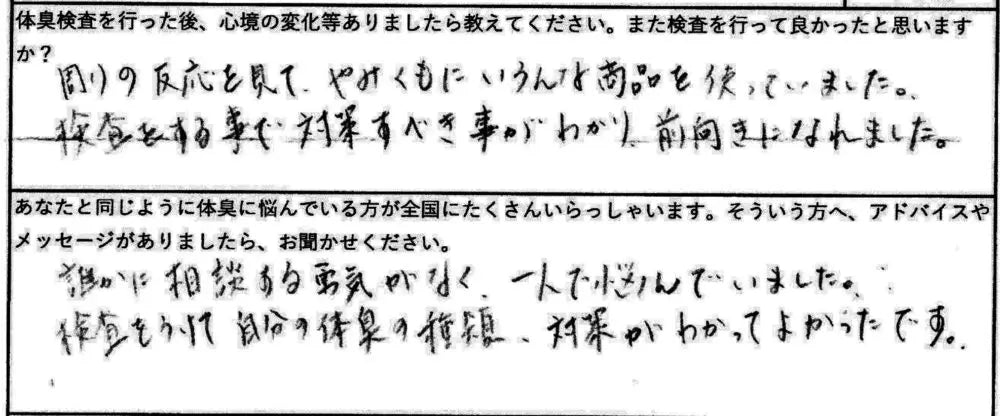 体臭検査を行った後、心境の変化等ありましたら教えてください。また検査を行って良かったと思います
か？
周りの反応を見て、やみくもにいろんな商品を使っていました。
検査をする事で対策すべき事がわかり、前向きになれました。
あなたと同じように体臭に悩んでいる方が全国にたくさんいらっしゃいます。そういう方へ、アドバイスや
メッセージがありましたら、お聞かせください。
誰かに相談する勇気がなく、一人で悩んでいました。
検査をうけて自分の体臭の種類、対策がわかってよかったです。